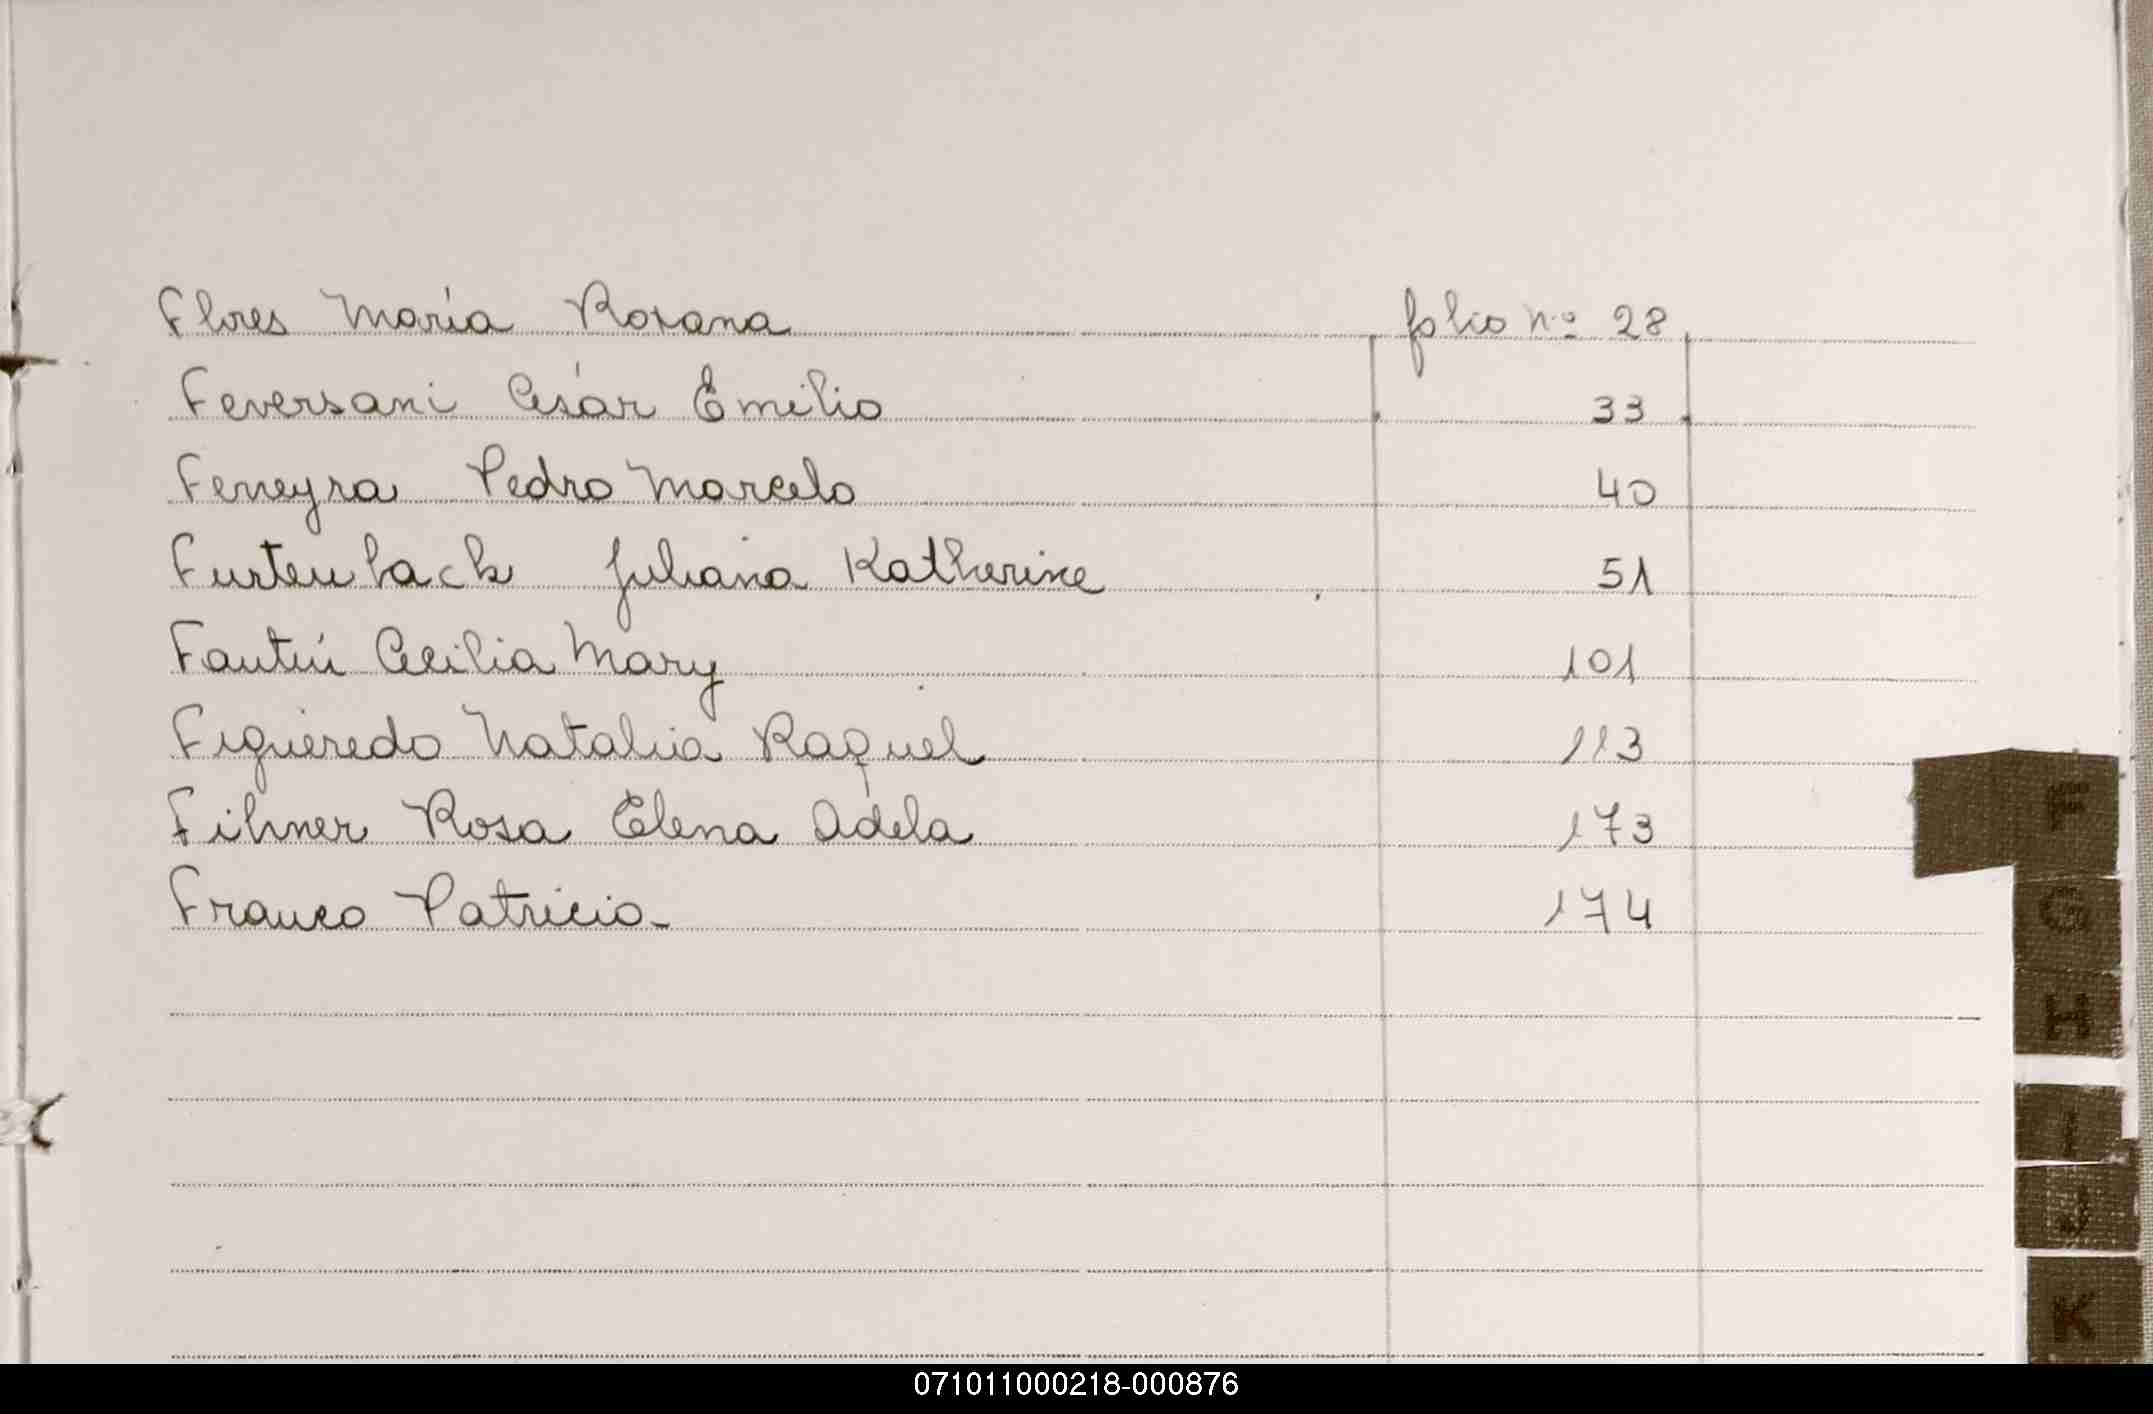 Flores María Roxana folio nº 28
Feversani César Emilio 33
Ferreyra Pedro Marcelo 40
Furtenback Juliana Katherine 51
Fantín Cecilia Mary 101
Figueredo Natalia Raquel 113
Filmer Rosa Elena Adela 173
Franco Patricio 174
F
G
H
I
J
K
071011000218-000876